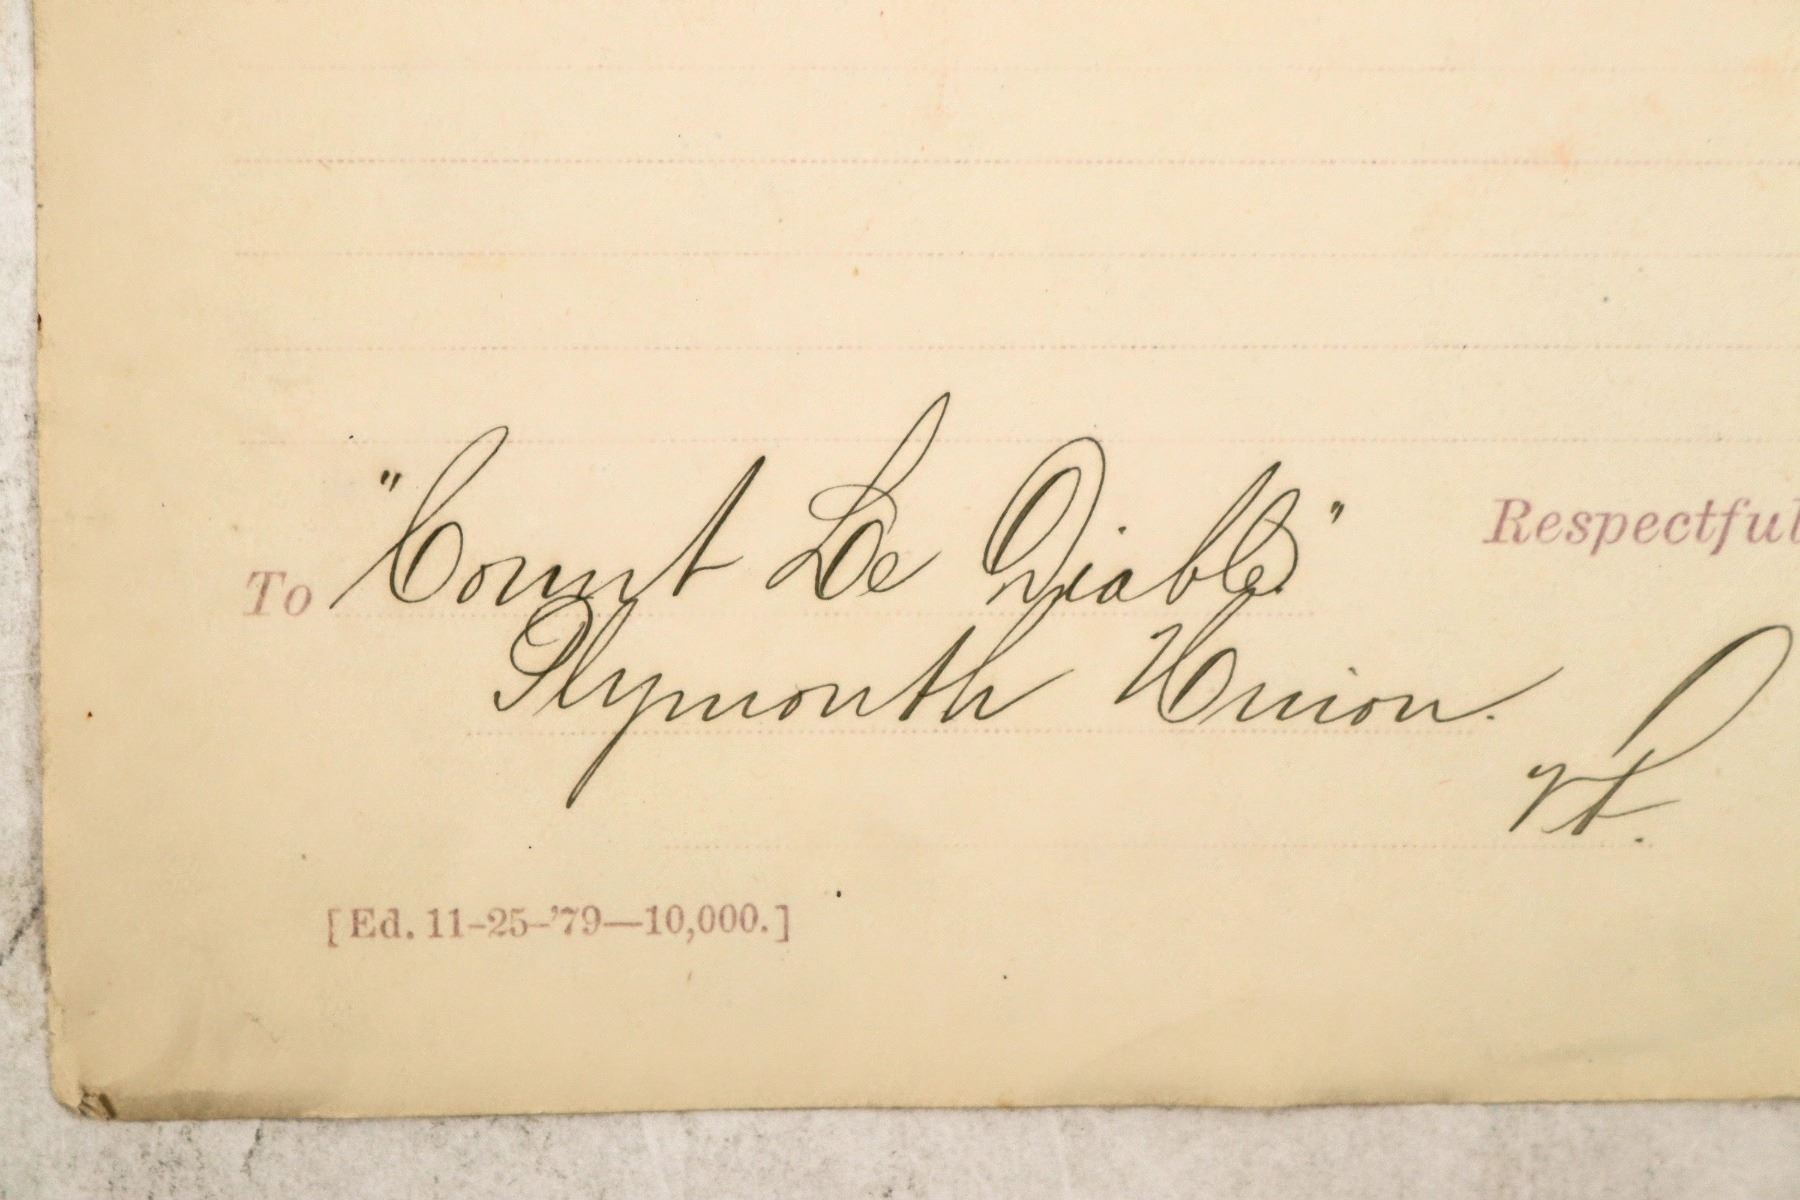 To "Count Le Diable"
Respectful
Plymouth Union.
Vt.
[Ed. 11-25-'79—10,000.]